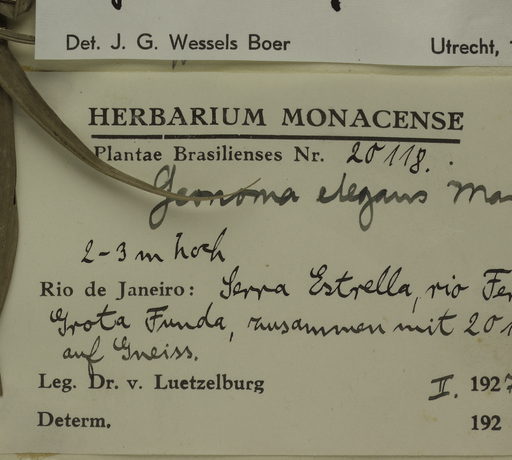 Det. J. G. Wessels Boer Utrecht,
HERBARIUM MONACENSE
Plantae Brasilienses Nr. 20118.
Geonoma elegans Ma
2-3 m hoch
Rio de Janeiro: Serra Estrella, rio Fer
Grota Funda, zusammen mit 201
auf Gneiss.
Leg. Dr. v. Luetzelburg II. 1927
Determ. 192